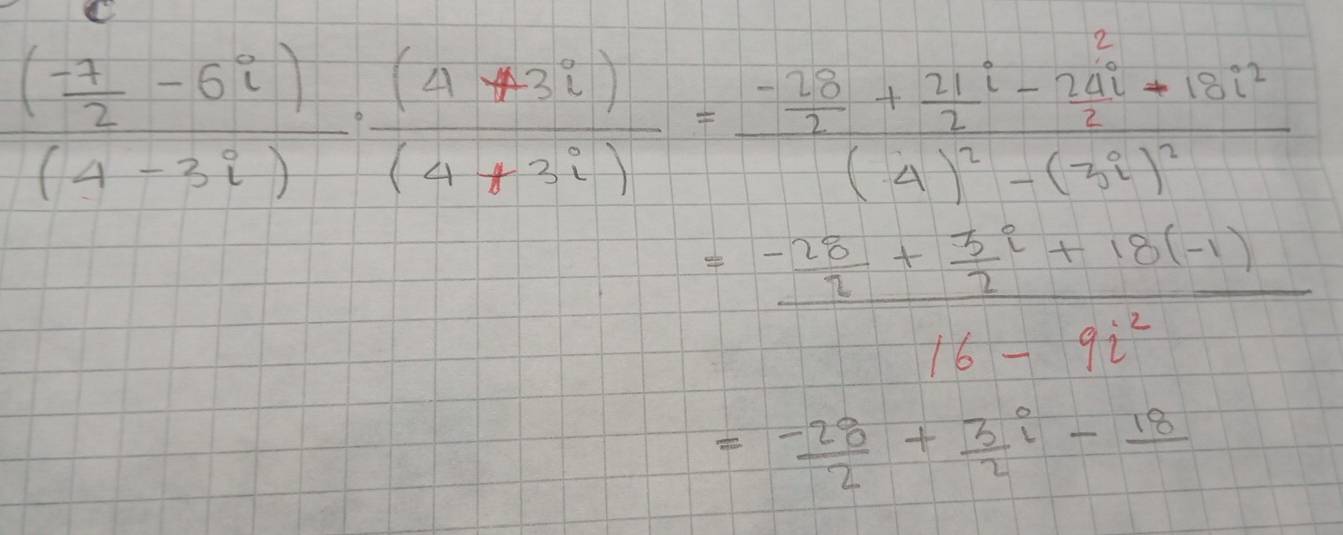 c
(-7/2 - 6i)/(4 - 3i) · (4 + 3i)/(4 + 3i) = (-28/2 + 21/2 i - 24i/2 2 - 18i²)/((4)² - (3i)²)
= (-28/2 + 3/2 i + 18(-1))/(16 - 9i²)
= -28/2 + 3/2 i - 18